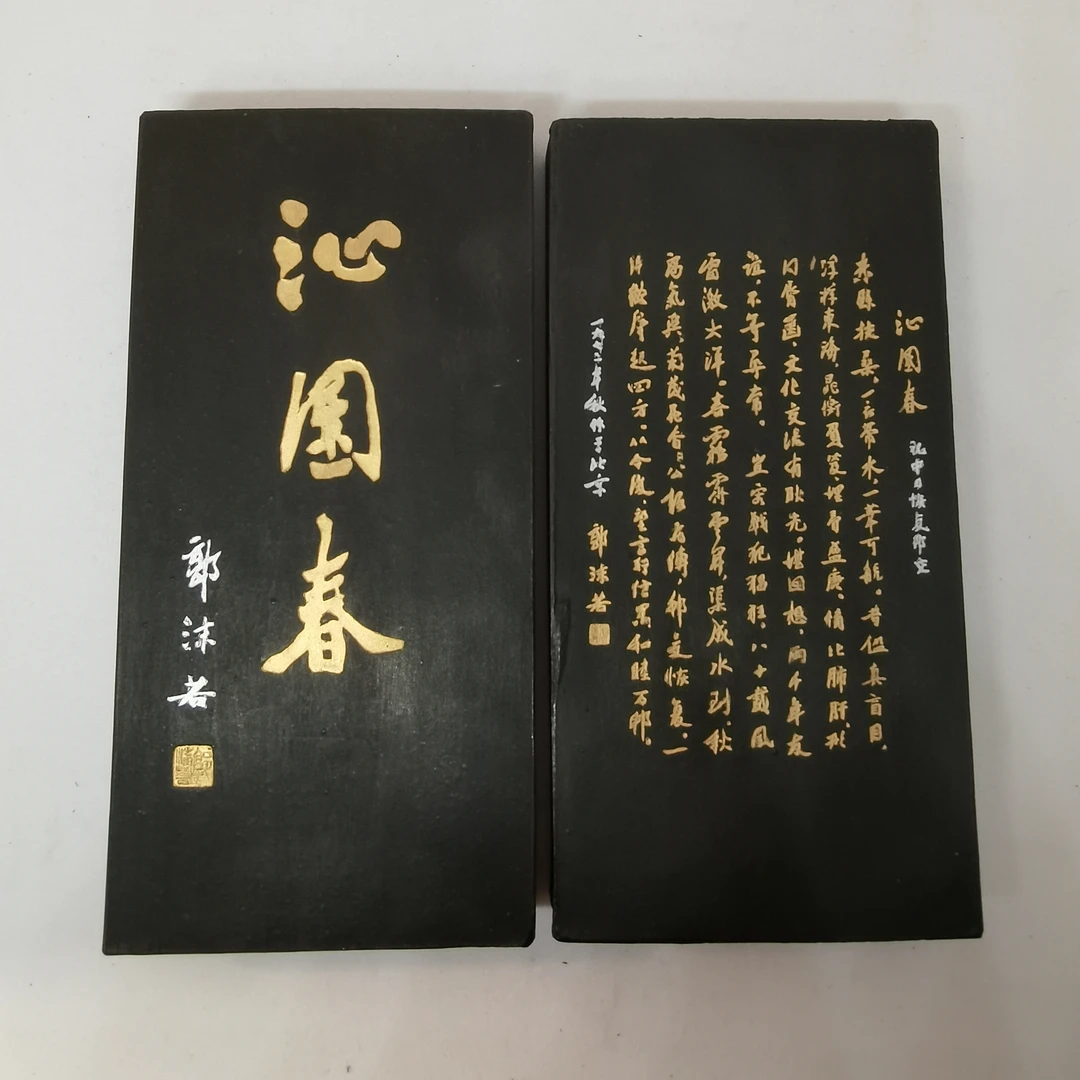 沁園春
郭沫若
沁園春
祝中日恢复邦交
赤縣扶桑，一衣帶水，一葦可航。昔鉴真盲目，
浮桴東海，晁衡負笈，埋骨盛唐。情比肺肝，形
同唇齒，文化交流有耿光。堪回想，两千年友
谊，不等尋常。豈容戰犯猖狂，八十載風
雷激大洋。喜霧霽雲開，渠成水到，秋
高氣爽，菊茂花香。公报飛傳，邦交恢复，一
片歡聲起四方。从今後，望言行信果，和睦万邦。
一九七二年秋作于北京
郭沫若